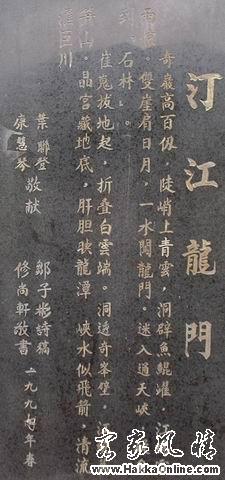 汀江龍門
奇巖高百仞，陡峭上青雲，洞辟魚鯤躍，江
雙崖肩日月，一水闖龍門。迷入道天峽
石林」。
崔嵬拔地起，折叠白雲端。洞透奇峯壁，
笋山。晶宮藏地底，肝胆映龍潭 峽水似飛箭，清流
匯巨川
葉聯登
康慧琴 敬献
鄒子彬詩稿
修尚軒敬書
一九九四年春
客家風情
www.HakkaOnline.com